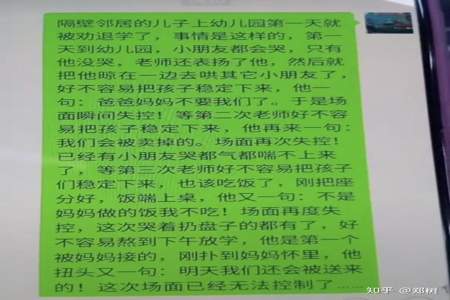 隔壁邻居的儿子上幼儿园第一天就
被劝退学了，事情是这样的，第一
天到幼儿园，小朋友都会哭，只有
他没哭，老师还表扬了他，然后就
把他晾在一边去哄其它小朋友了，
好不容易把孩子稳定下来，他一
句：爸爸妈妈不要我们了。于是场
面瞬间失控！等第二次老师好不容
易把孩子稳定下来，他再来一句：
我们会被卖掉的。场面再次失控！
已经有小朋友哭都气都喘不上来
了，等第三次老师好不容易把孩子
们稳定下来，也该吃饭了，刚把座
分好，饭端上桌，他又一句：不是
妈妈做的饭我不吃！场面再度失
控，这次哭着扔盘子的都有了，好
不容易熬到下午放学，他是第一个
被妈妈接的，刚扑到妈妈怀里，他
扭头又一句：明天我们还会被送来
的！这次场面已经无法控制了····
知乎 @郑树